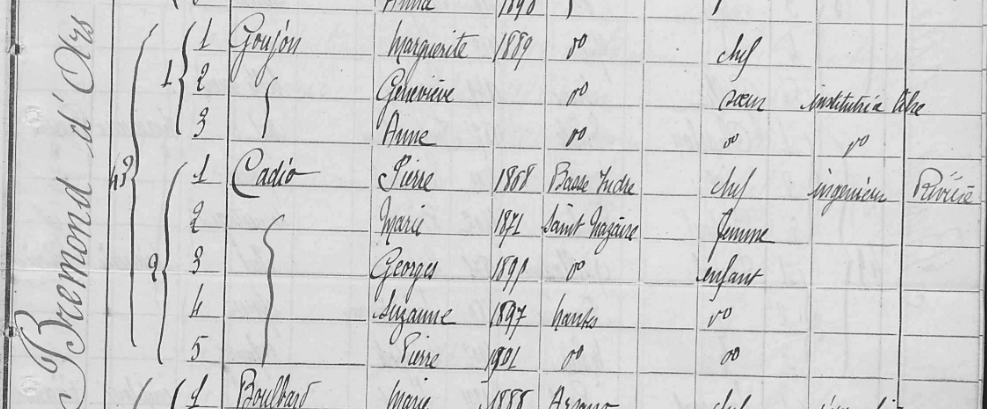 Anne 1890
Bremond d'Ars
1 1 Goujon Marguerite 1889 do chef
2 Geneviève do sœur institutrice libre
3 Anne do do do
2 1 Cadio Pierre 1868 Basse Indre chef ingénieur
2 Marie 1871 Saint Nazaire femme
3 Georges do enfant
4 Suzanne 1897 Nantes do
5 Pierre 1901 do do
1 Boulbard Marie 1888